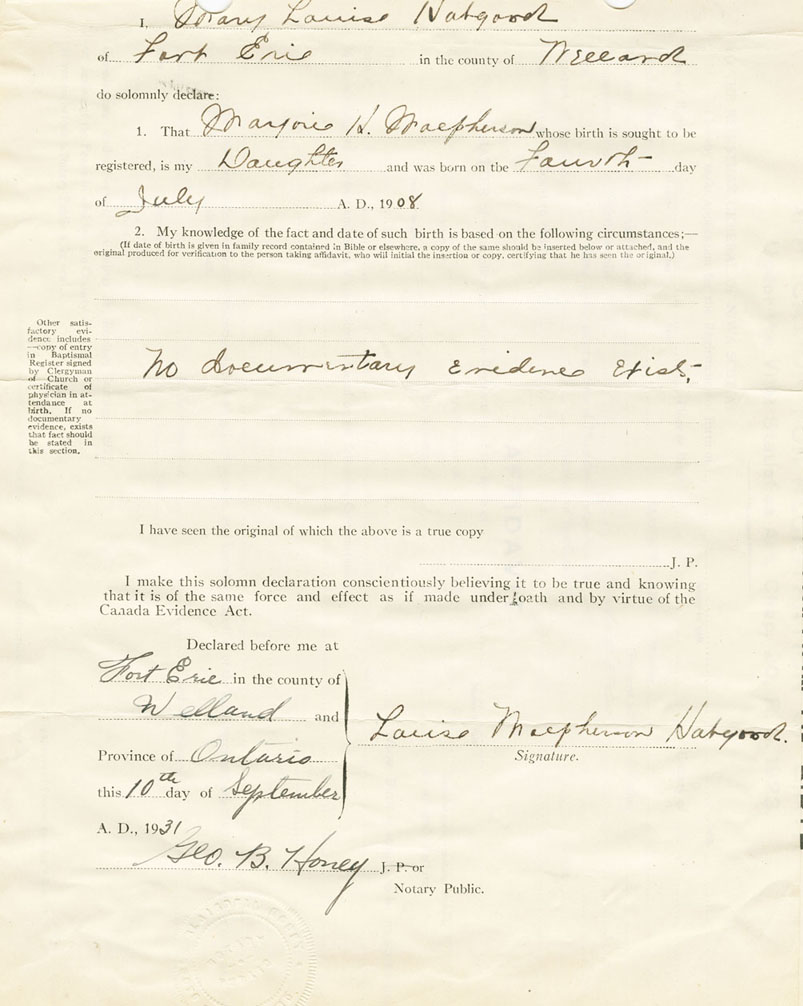 I, Mary Louise Habgood
of Fort Erie in the county of Welland
do solomnly declare:
1. That Marjorie H. Macpherson whose birth is sought to be
registered, is my Daughter and was born on the Fourth day
of July A. D., 1908
2. My knowledge of the fact and date of such birth is based on the following circumstances;—
(If date of birth is given in family record contained in Bible or elsewhere, a copy of the same should be inserted below or attached, and the
original produced for verification to the person taking affidavit, who will initial the insertion or copy, certifying that he has seen the original.)
Other satis-
factory evi-
dence includes
—copy of entry
in Baptismal
Register signed
by Clergyman
of Church or
certificate of
physician in at-
tendance at
birth. If no
documentary
evidence, exists
that fact should
be stated in
this section.
No documentary Evidence Exists.
I have seen the original of which the above is a true copy
J. P.
I make this solomn declaration conscientiously believing it to be true and knowing
that it is of the same force and effect as if made under oath and by virtue of the
Canada Evidence Act.
Declared before me at
Fort Erie in the county of
Welland and
Province of Ontario
this 10th day of September
A. D., 1931
Louise Macpherson Habgood.
Signature.
Geo. B. Honey J. P. or
Notary Public.